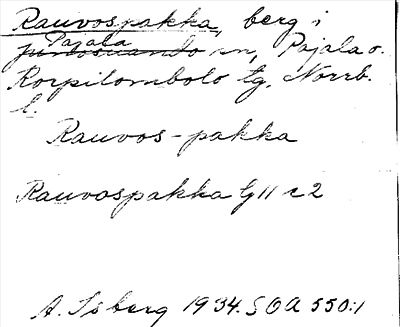 Rauvospakka, berg i
Pajala
Junosuando sn, Pajala o.
Korpilombolo tg, Norrb.
l.
Rauvos-pakka
Rauvospakka G11 c2
A. Isberg 1934. SOA 550:1